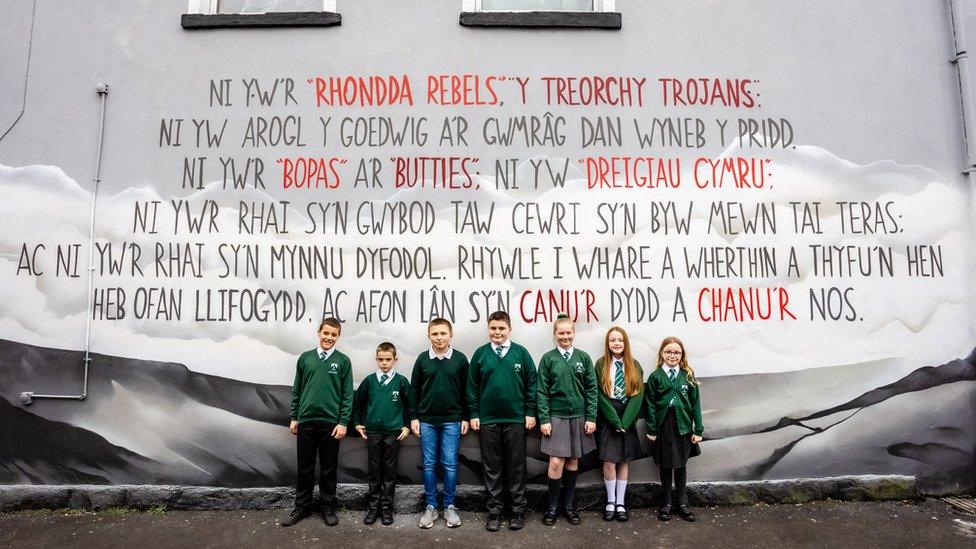 NI YW'R "RHONDDA REBELS", "Y TREORCHY TROJANS";
NI YW AROGL Y GOEDWIG A'R GWMRÂG DAN WYNEB Y PRIDD.
NI YW'R "BOPAS" A'R "BUTTIES"; NI YW "DREIGIAU CYMRU";
NI YW'R RHAI SY'N GWYBOD TAW CEWRI SY'N BYW MEWN TAI TERAS;
AC NI YW'R RHAI SY'N MYNNU DYFODOL. RHYWLE I WHARE A WHERTHIN A THYFU'N HEN
HEB OFAN LLIFOGYDD. AC AFON LÂN SY'N CANU'R DYDD A CHANU'R NOS.